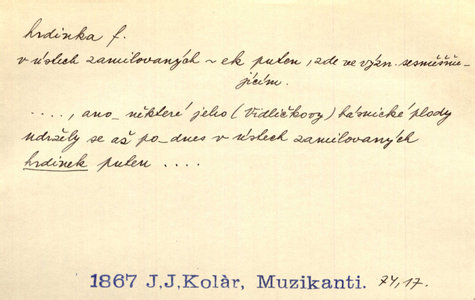 hrdinka f.
v ústech zamilovaných ~ ek puten, zde ve význ. sesměšňu-
jícím.
...., ano_ některé jeho (Vidličkovy) básnické plody
udržely se až po_dnes v ústech zamilovaných
hrdinek puten ....
1867 J,J,Kolàr, Muzikanti. 74,17.